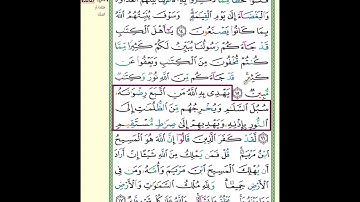 وَالْبَغْضَاءَ إِلَىٰ يَوْمِ الْقِيَٰمَةِ وَسَوْفَ يُنَبِّئُهُمُ اللَّهُ
بِمَا كَانُوا يَصْنَعُونَ يَٰأَهْلَ الْكِتَٰبِ
قَدْ جَاءَكُمْ رَسُولُنَا يُبَيِّنُ لَكُمْ كَثِيرًا مِّمَّا
كُنتُمْ تُخْفُونَ مِنَ الْكِتَٰبِ وَيَعْفُوا عَن
كَثِيرٍ قَدْ جَاءَكُم مِّنَ اللَّهِ نُورٌ وَكِتَٰبٌ
مُّبِينٌ يَهْدِي بِهِ اللَّهُ مَنِ اتَّبَعَ رِضْوَٰنَهُ
سُبُلَ السَّلَٰمِ وَيُخْرِجُهُم مِّنَ الظُّلُمَٰتِ إِلَى
النُّورِ بِإِذْنِهِ وَيَهْدِيهِمْ إِلَىٰ صِرَٰطٍ مُّسْتَقِيمٍ
لَّقَدْ كَفَرَ الَّذِينَ قَالُوا إِنَّ اللَّهَ هُوَ الْمَسِيحُ
ابْنُ مَرْيَمَ قُلْ فَمَن يَمْلِكُ مِنَ اللَّهِ شَيْئًا إِنْ أَرَادَ
أَن يُهْلِكَ الْمَسِيحَ ابْنَ مَرْيَمَ وَأُمَّهُ وَمَن فِي
الْأَرْضِ جَمِيعًا وَلِلَّهِ مُلْكُ السَّمَٰوَٰتِ وَالْأَرْضِ